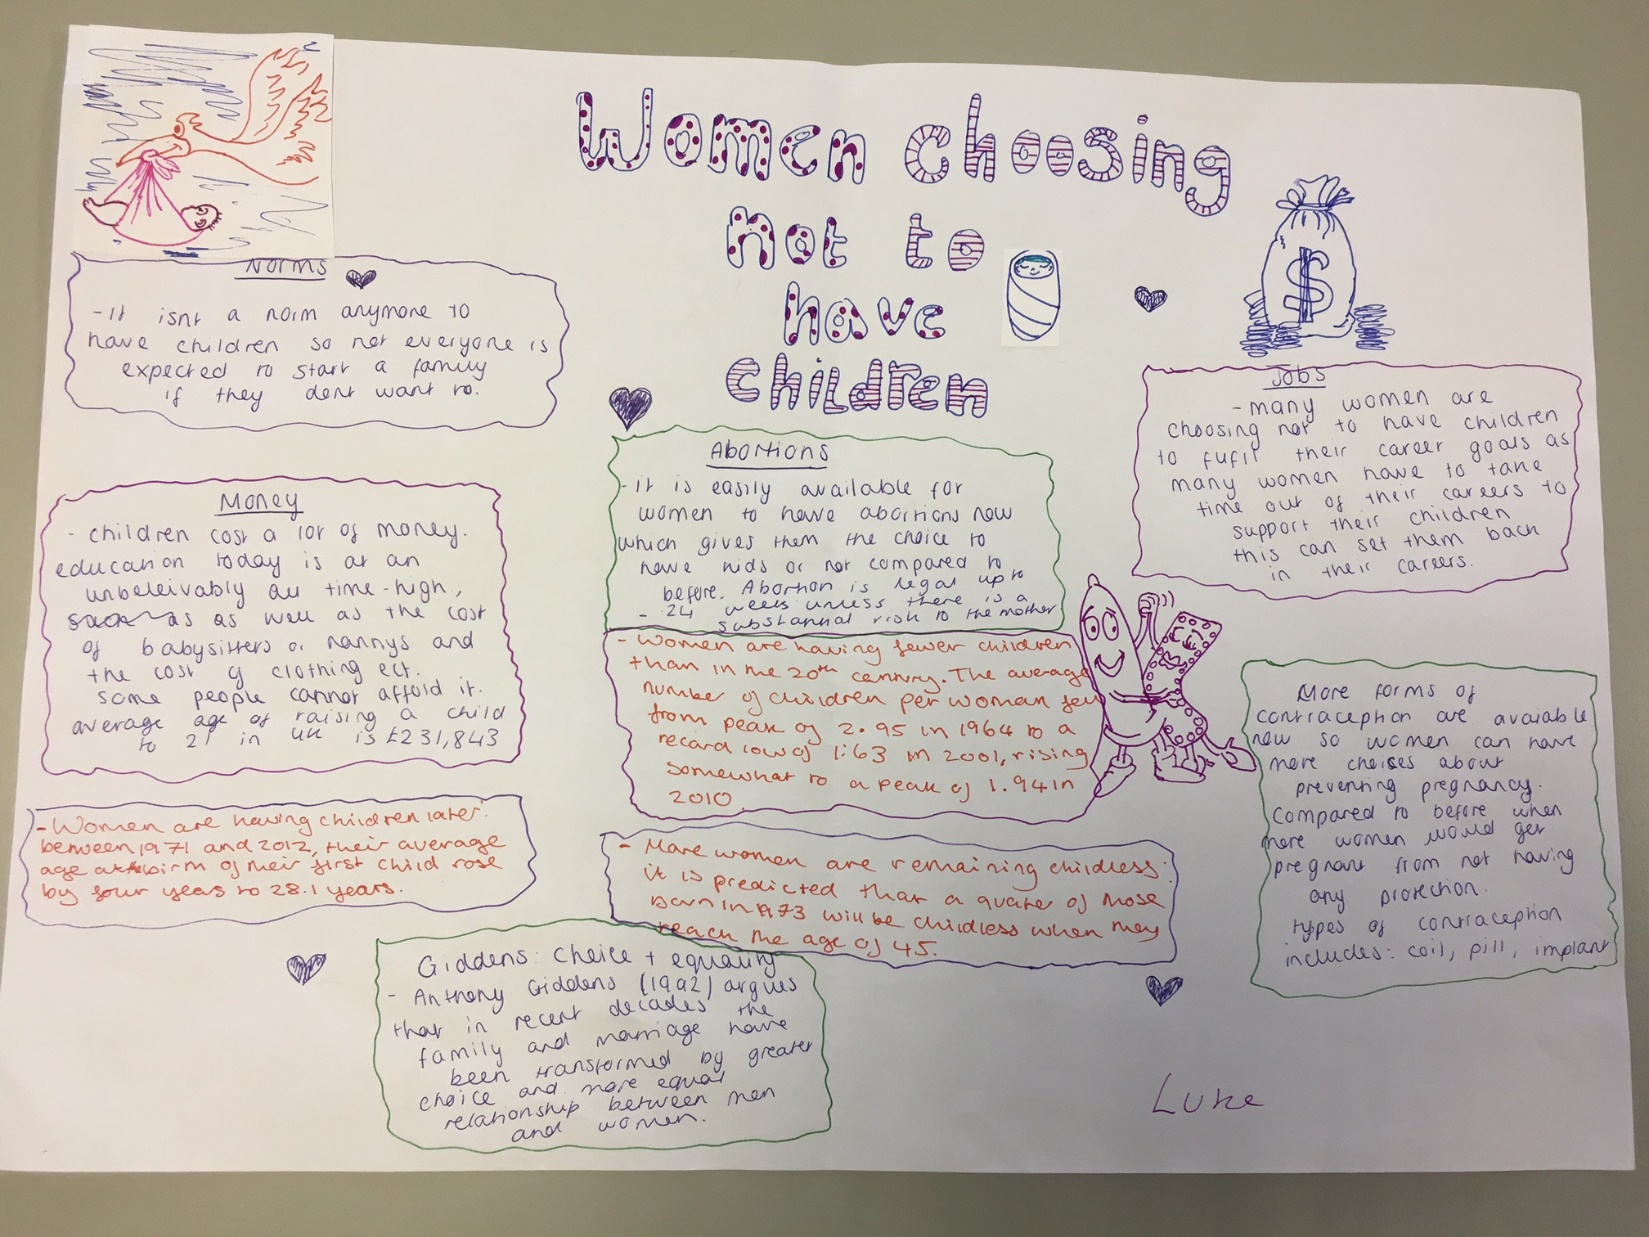 Women choosing
not to
have
children
Norms
- It isnt a norm anymore to
have children so not everyone is
expected to start a family
if they dont want to.
Money
- children cost a lot of money.
education today is at an
unbeleivably all time-high,
as as well as the cost
of babysitters or nannys and
the cost of clothing ect.
some people cannot afford it.
average age of raising a child
to 21 in UK is £231,843
- Women are having children later:
between 1971 and 2012, their average
age at birth of their first child rose
by four years to 28.1 years.
Abortions
- it is easily available for
women to have abortions now
which gives them the choice to
have kids or not compared to
before. Abortion is legal up to
- 24 weeks unless there is a
substantial risk to the mother
- Women are having fewer children
than in the 20th century. The average
number of children per woman fell
from peak of 2.95 in 1964 to a
record low of 1:63 in 2001, rising
somewhat to a peak of 1.94 in
2010.
- More women are remaining childless:
it is predicted that a quater of those
born in 1973 will be childless when they
reach the age of 45.
Giddens: Choice + equality
- Anthony Giddens (1992) argues
that in recent decades the
family and marriage have
been transformed by greater
choice and more equal
relationship between men
and women.
$
Jobs
- many women are
choosing not to have children
to fufil their career goals as
many women have to take
time out of their careers to
support their children
this can set them back
in their careers.
More forms of
contraception are avaiable
now so women can have
more choises about
preventing pregnancy.
Compared to before when
more women would get
pregnant from not having
any protection.
types of contraception
includes: coil, pill, implant
Luke